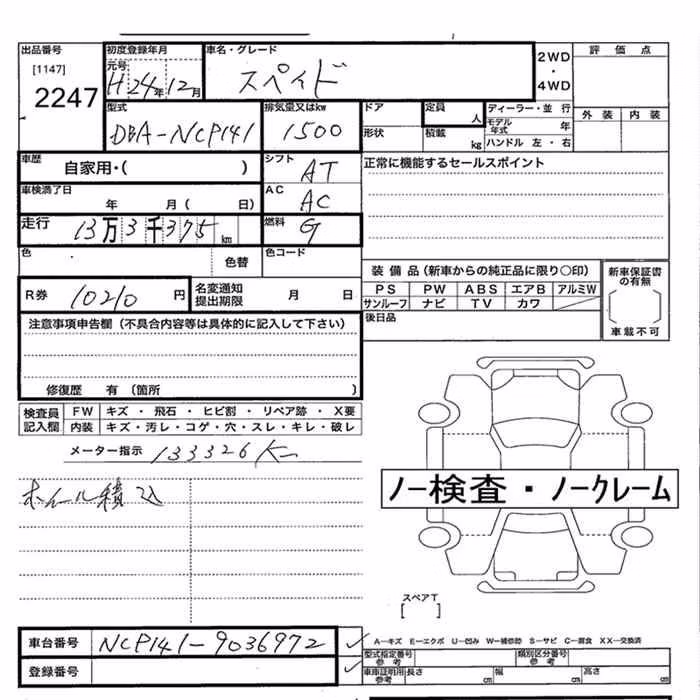 出品番号 初度登録年月 車名・グレード 2WD・4WD 評価点
[1147] 元号 H24年12月 スペイド
2247
型式 排気量又はkw ドア 定員 人 ディーラー・並行 外装 内装
DBA-NCP141 1500 形状 積載 kg モデル年式 年
ハンドル 左・右
車歴 自家用・( ) シフト AT 正常に機能するセールスポイント
車検満了日 年 月( 日) AC AC
走行 13万3千375km 燃料 G
色 色替 色コード
装備品(新車からの純正品に限り〇印) 新車保証書の有無
R券 10210円 名変通知提出期限 月 日 PS PW ABS エアB アルミW
サンルーフ ナビ TV カワ
車載不可
注意事項申告欄(不具合内容等は具体的に記入して下さい) 後日品
修復歴 有(箇所 )
検査員記入欄 FW キズ・飛石・ヒビ割・リペア跡・X要
内装 キズ・汚レ・コゲ・穴・スレ・キレ・破レ
メーター指示 133326K
ホイール積込
ノー検査・ノークレーム
スペアT
[ ]
車台番号 NCP141-9036972 A―キズ E―エクボ U―凹み W―補修跡 S―サビ C―腐食 XX―交換済
型式指定番号 参考 類別区分番号 参考
登録番号 車庫証明用参考 長さ cm 幅 cm 高さ cm